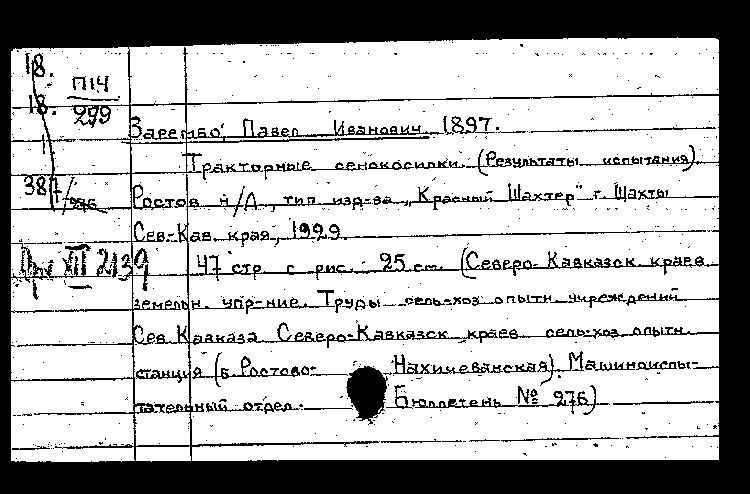 18.
П14
18. 299
Зарембо, Павел Иванович, 1897.
Тракторные сенокосилки. (Результаты испытания).
387/276
Ростов н/Д, тип. изд-ва „Красный Шахтер" г. Шахты
Сев.-Кав. края, 1929.
Арх XIII 2139
47 стр. с рис. 25 см. (Северо-Кавказск. краев.
земельн. упр-ние. Труды сель-хоз. опытн. учреждений
Сев. Кавказа Северо-Кавказск. краев. сель-хоз. опытн.
станция (б. Ростово- Нахичеванская). Машиноиспы-
тательный отдел. Бюллетень № 276)